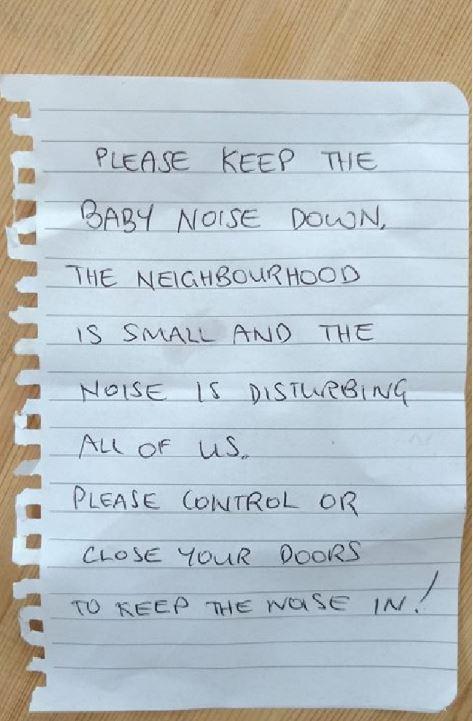 PLEASE KEEP THE
BABY NOISE DOWN.
THE NEIGHBOURHOOD
IS SMALL AND THE
NOISE IS DISTURBING
ALL OF US.
PLEASE CONTROL OR
CLOSE YOUR DOORS
TO KEEP THE NOISE IN!